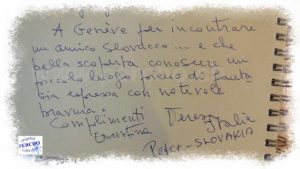 A Genève per incontrare
un amico slovacco... e che
bella scoperta conoscere un
piccolo luogo pieno di fanta
sia espressa con notevole
bravura.
Complimenti Teresa
Italia
Peter - SLOVAKIA
PERCHO